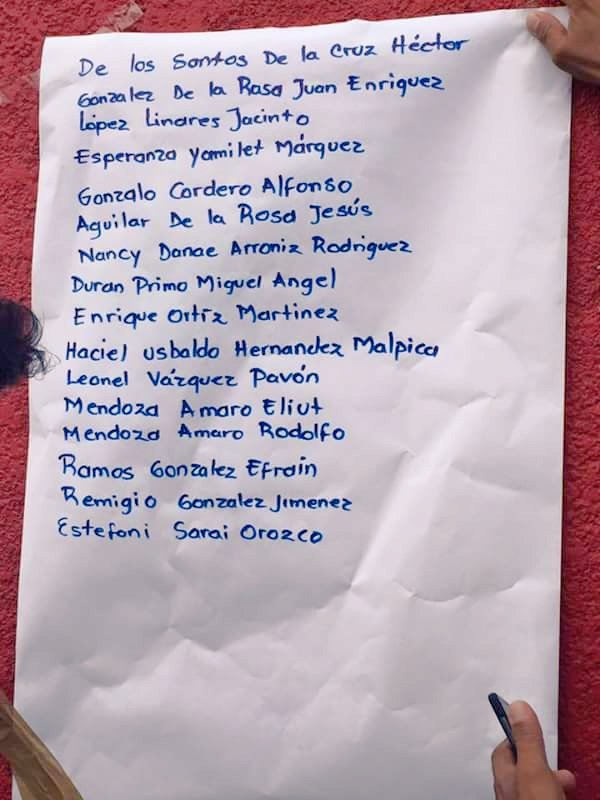 De los Santos De la Cruz Héctor
Gonzalez De la Rosa Juan Enriquez
López Linares Jacinto
Esperanza Yamilet Márquez
Gonzalo Cordero Alfonso
Aguilar De la Rosa Jesús
Nancy Danae Arroniz Rodriguez
Duran Primo Miguel Angel
Enrique Ortíz Martinez
Haciel Usbaldo Hernandez Malpica
Leonel Vázquez Pavón
Mendoza Amaro Eliut
Mendoza Amaro Rodolfo
Ramos Gonzalez Efrain
Remigio Gonzalez Jimenez
Estefani Sarai Orozco